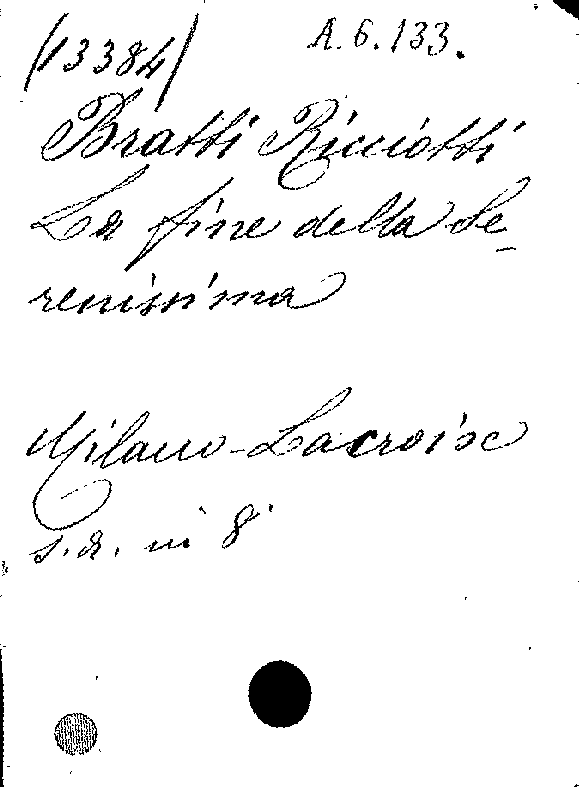 (13384) A.6.133.
Bratti Ricciotti
La fine della Se-
renissima
Milano-Lacroix
s.a. in 8°